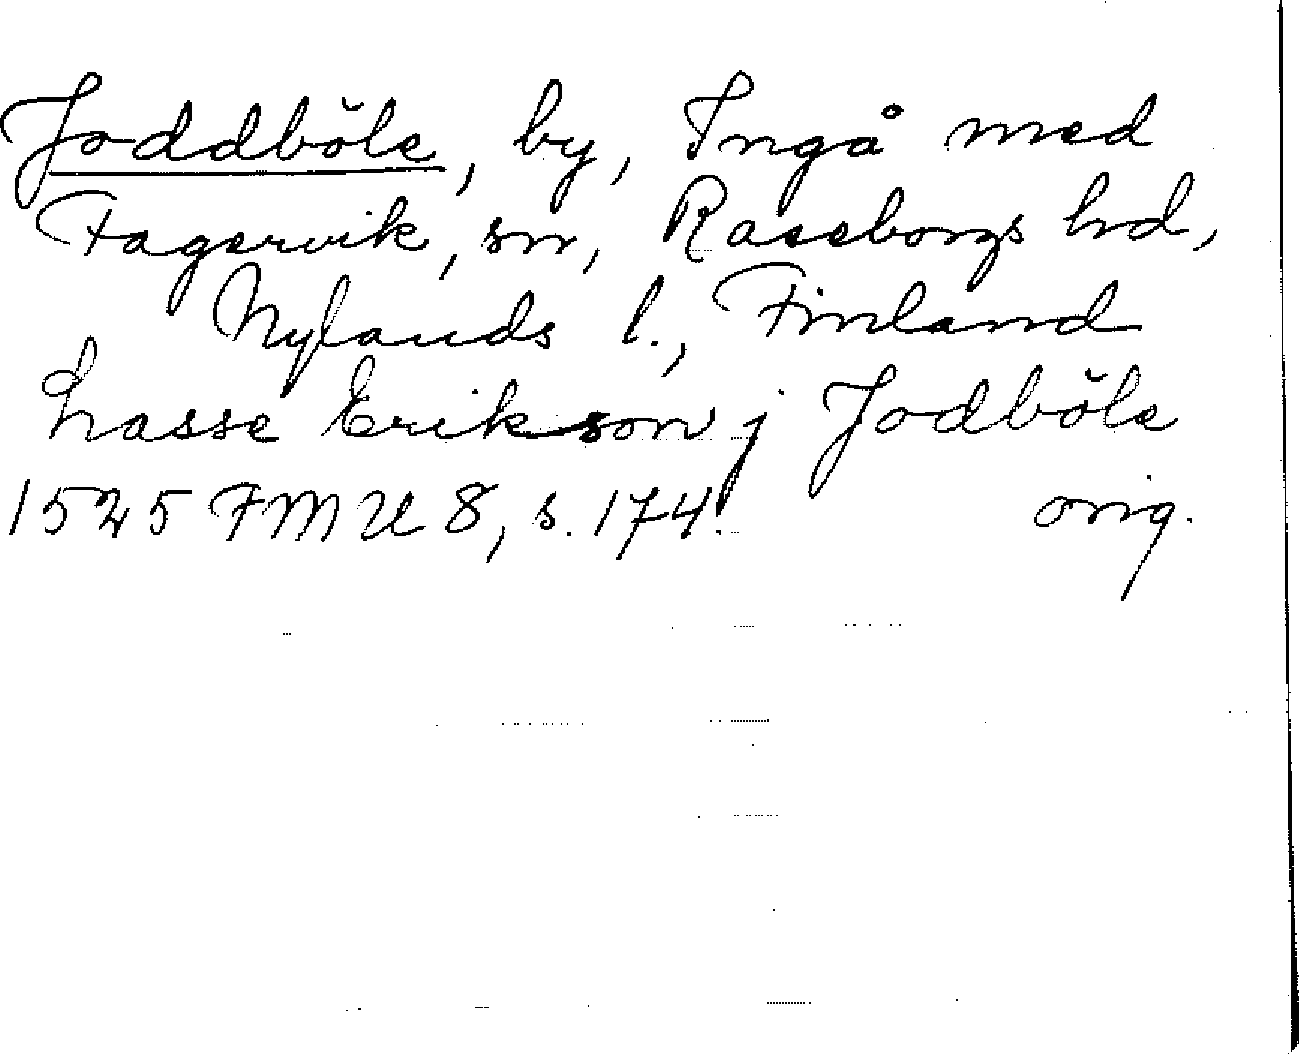 Joddböle, by, Ingå med
Fagervik, sn, Raseborgs hd,
Nylands l., Finland
Lasse Erikson j Jodböle
1525 FMU 8, s. 174. orig.